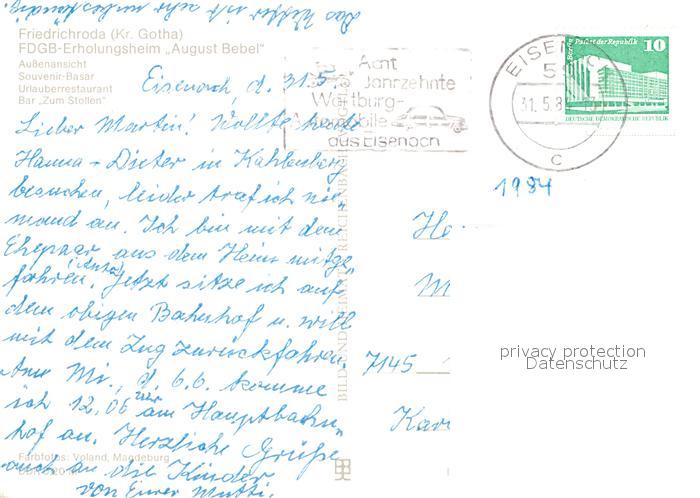 Das Wetter ist sehr unbeständig
Friedrichroda (Kr. Gotha)
FDGB-Erholungsheim „August Bebel"
Außenansicht
Souvenir-Basar
Urlauberrestaurant
Bar „Zum Stollen"
Eisenach, d. 31.5.
Lieber Martin! Wollte heute
Hanna-Dieter in Kahlenberg
besuchen, leider traf ich nie-
mand an. Ich bin mit dem
Ehepaar aus dem Heim mitge-
fahren. (Auto) Jetzt sitze ich auf
dem obigen Bahnhof u. will
mit dem Zug zurückfahren.
Am Mi., d. 6.6. komme
ich 12.06 Uhr am Hauptbahn-
hof an. Herzliche Grüße
auch an die Kinder
von Eurer Mutti.
Farbfotos: Voland, Magdeburg
BILD UND HEIMAT REICHENBACH
Acht
Jahrzehnte
Wartburg-
Automobile
aus Eisenach
EISENACH
31.5.8
c
Berlin, Palast der Republik
10
DEUTSCHE DEMOKRATISCHE REPUBLIK
1984
He
M
7145
Kar
privacy protection
Datenschutz